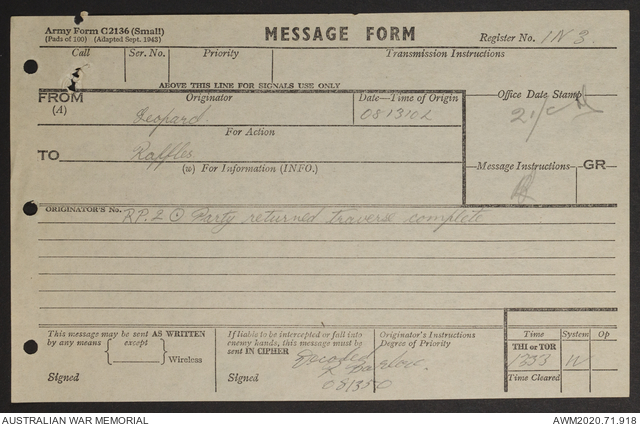 Army Form C2136 (Small)
(Pads of 100) (Adapted Sept. 1943)
MESSAGE FORM
Register No. IN 3.
Call
Ser. No.
Priority
Transmission Instructions
ABOVE THIS LINE FOR SIGNALS USE ONLY
FROM
(A)
Originator
Leopard.
Date—Time of Origin
081310Z
Office Date Stamp
For Action
TO
Raffles
(W) For Information (INFO.)
Message Instructions
GR
ORIGINATOR'S No. RP.2 ⊙ Party returned traverse complete
This message may be sent AS WRITTEN
by any means { except } Wireless
Signed
If liable to be intercepted or fall into
enemy hands, this message must be
sent IN CIPHER
Signed
Originator's Instructions
Degree of Priority
Decoded
R Barlow.
081350
Time
System
Op
THI or TOR
1333
W
Time Cleared
AUSTRALIAN WAR MEMORIAL
AWM2020.71.918